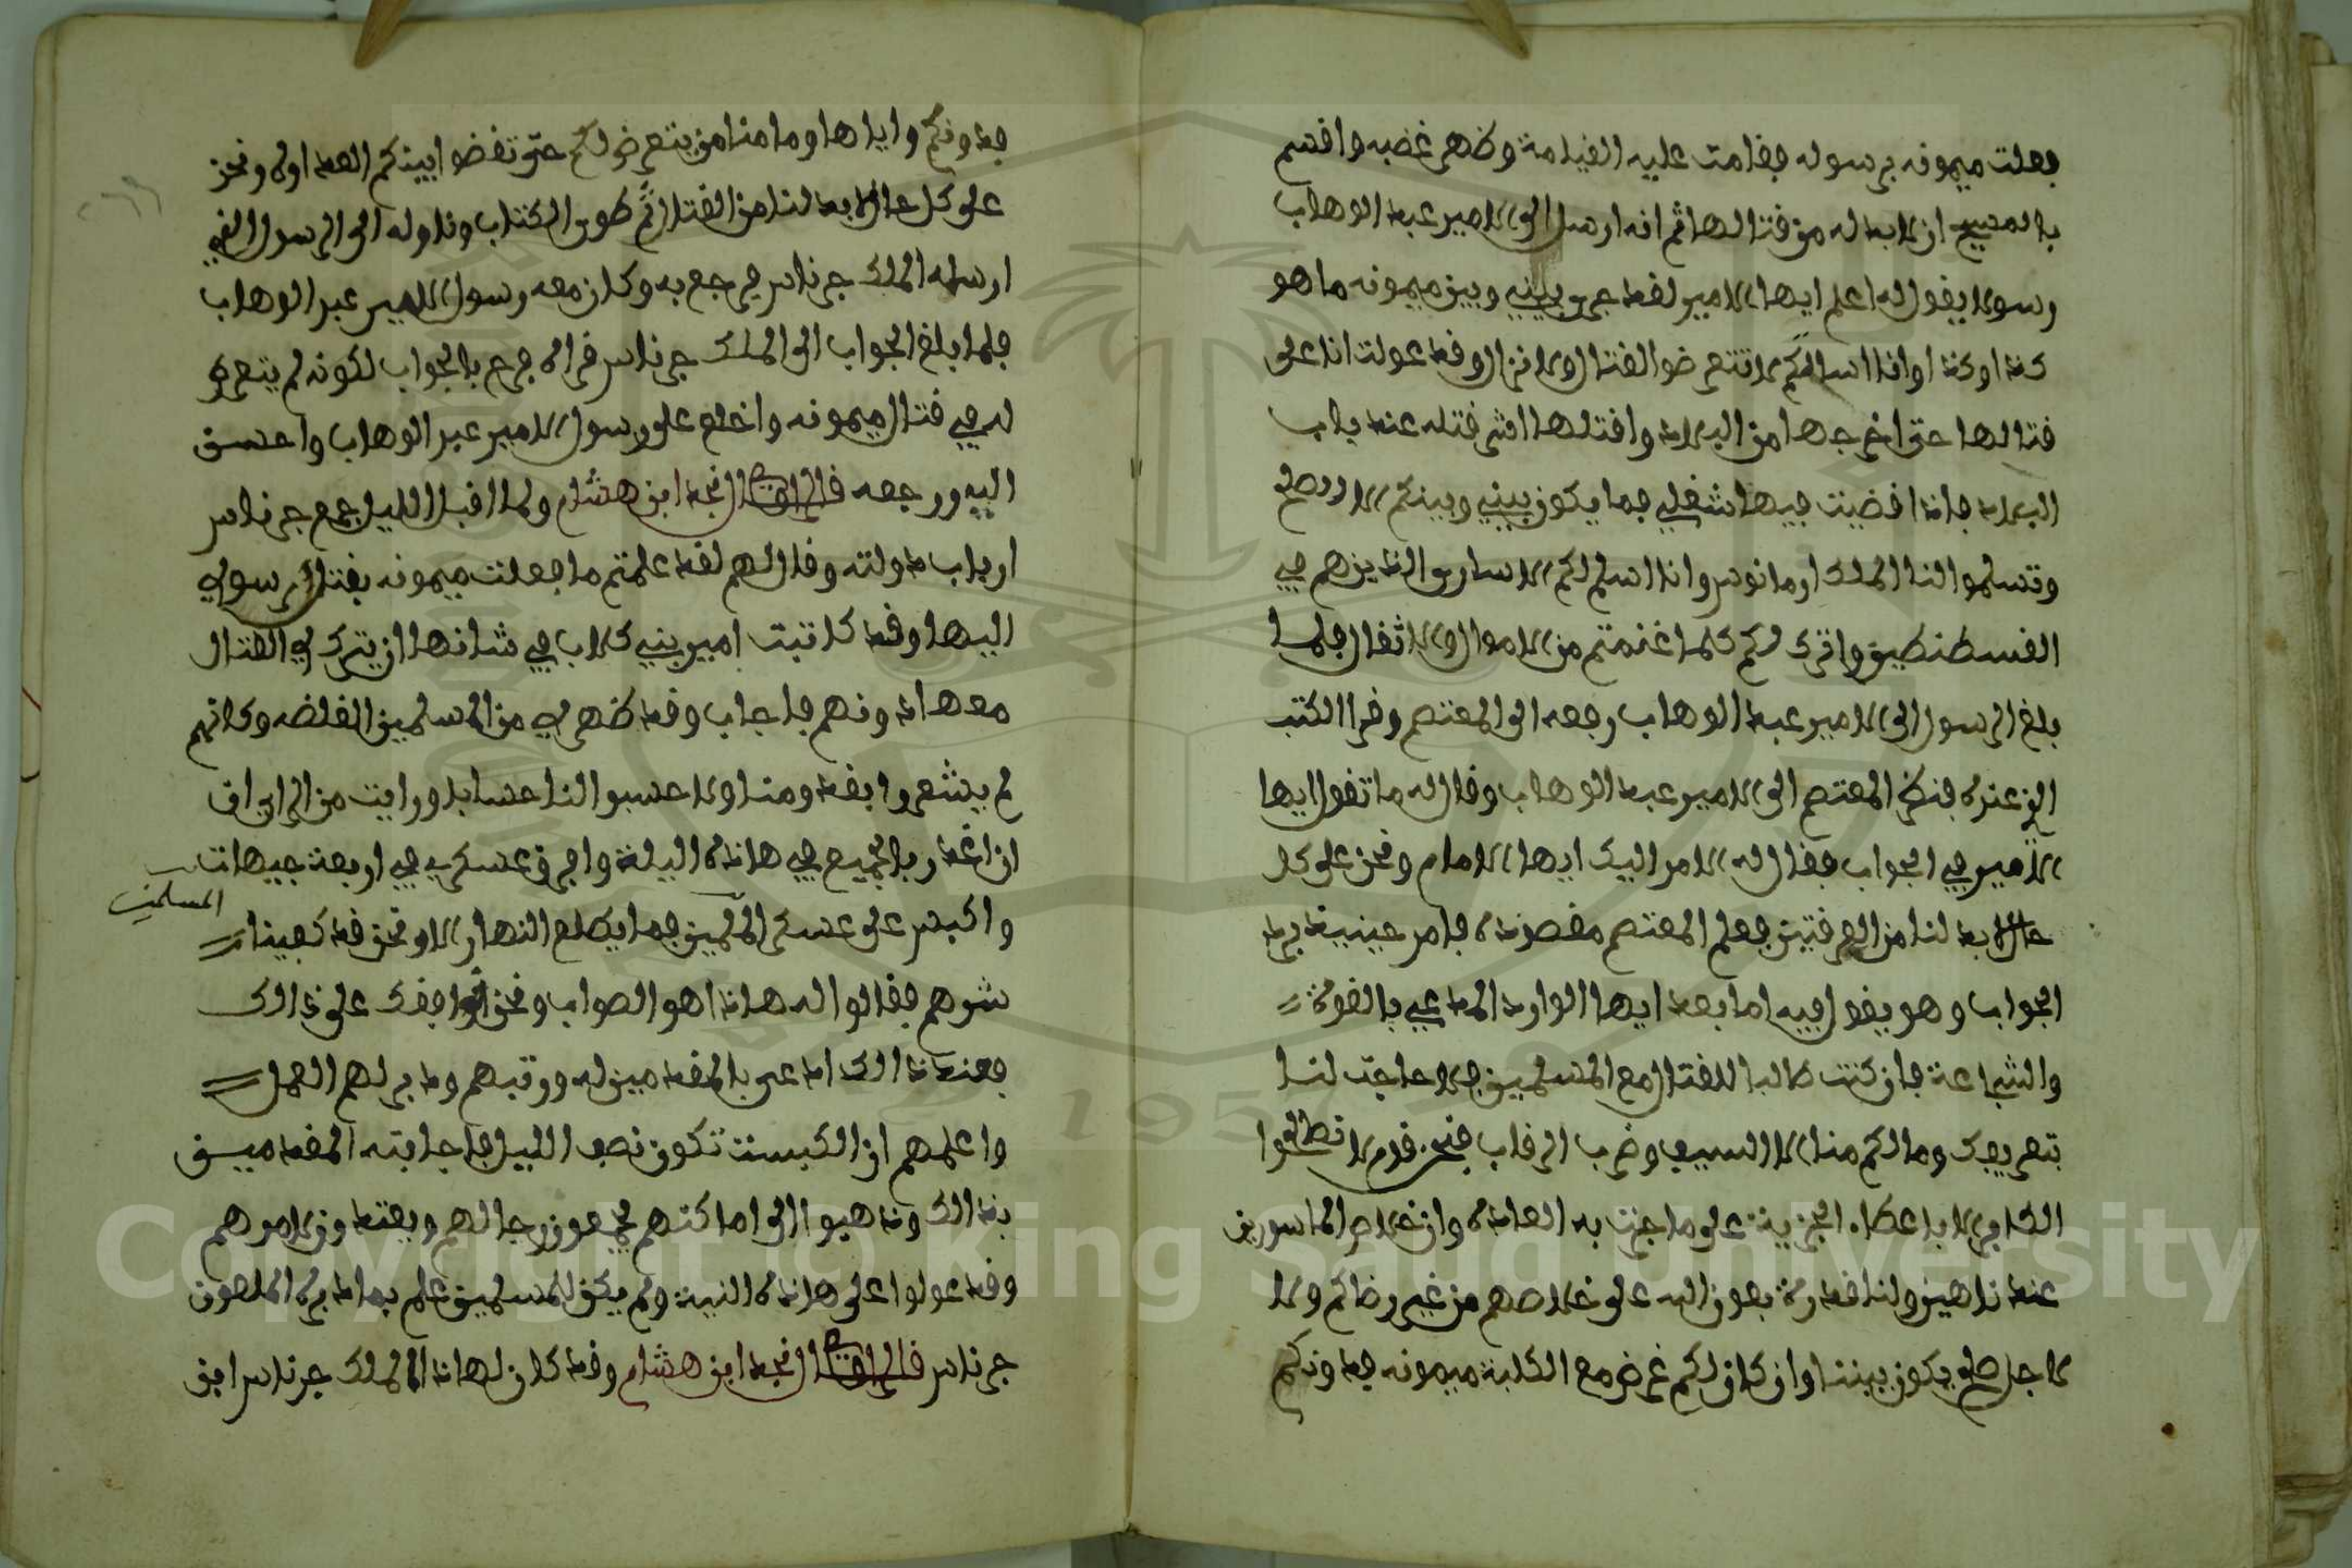 فعلت ميمونه برسوله فقامت عليه القيامة وظهر غضبه واقسم
بالمسيح ان لابد له من قتالها ثم انه ارسل الى الامير عبد الوهاب
رسولا يقول له اعلم ايها الامير لقد جرى بيني وبين ميمونه ما هو
كذا وكذا وانا اسالكم لا تتعرضوا لقتال ولا نزال وقد عولت انا على
قتالها حتى اخرجها من البلاد واقتلها اشر قتله عند باب
البلاد فاذا قضيت فيها شغلي فما يكون بيني وبينكم الا الصلح
وتسلموا لنا الملك ارمانوس وانا اسلم لكم الاسارى الذين هم في
القسطنطين واترك لكم كلما غنمتم من الاموال والاثقال فلما
بلغ الرسول الى الامير عبد الوهاب رجعه الى المعتصم وقرا الكتب
الذي عنده فنظر المعتصم الى الامير عبد الوهاب وقال له ما تقول ايها
الامير في الجواب فقال له الامر اليك ايها الامام ونحن على كل
حال لابد لنا من الفرقتين فعلم المعتصم مقصوده فامر حينيذ برد
الجواب وهو يقول فيه اما بعد ايها الوارد المدعي بالقوة
والشجاعة فان كنت طالبا للقتال مع المسلمين فلا حاجت لنا
بتعريفك وما لكم منا الا السيف وضرب الرقاب فنحن قوم لا نطالعوا
الكافر الا باعطاء الجزية على ما جرت به العاده وان خلاص الماسورين
عند ناهين ولنا قدرة بعون الله على خلاصهم من غير رضاكم ولا
لاجل صلح يكون بيننا وان كان لكم غرض مع الكلبة ميمونه فدونكم
فدونكم واياها وما منا من يتعرض لكم حتى تفضوا بينكم العداوه ونحن
على كل حال لابد لنا من القتال ثم طوى الكتاب وناوله الى الرسول الذي
ارسله الملك جرناس فرجع به وكان معه رسول الامير عبد الوهاب
فلما بلغ الجواب الى الملك جرناس قراه فرح بالجواب لكونه لم يتعرض
له في قتال ميمونه واخلع على رسول الامير عبد الوهاب واحسن
اليه ورجعه قال الراوي قال نجد ابن هشام ولما اقبل الليل جمع جرناس
ارباب دولته وقال لهم لقد علمتم ما فعلت ميمونه بقتل رسولي
اليها وقد كاتبت امير بني كلاب في شانها ان يترك لي القتال
معها دونهم فاجاب وقد ظهر لي من المسلمين الغلضه وكانهم
لم يشعروا بقدومنا ولا حسبوا لنا حسابا ورايت من الراي ان
ان اغدر بالجميع في هاذه اليلة وافرق عسكري في اربعة جيهات
واكبس على عسكر المسلمين فما يطلع النهار الا ونحن قد كفينا
المسلمين
شرهم فقالوا له هاذا هو الصواب ونحن نوافقك على ذالك
فعند ذالك ادعى بالمقدمين له ورتبهم ودبر لهم العمل
واعلمهم ان الكبست تكون نصف الليل فاجابته المقدمين
بذالك وذهبوا الى اماكنهم يجمعون رجالهم ويعتدون لامرهم
وقد عولوا على هاذه النية ولم يكن للمسلمين علم بما دبره الملعون
جرناس قال الراوي قال نجد ابن هشام وقد كان لهاذا الملك جرناس ابن